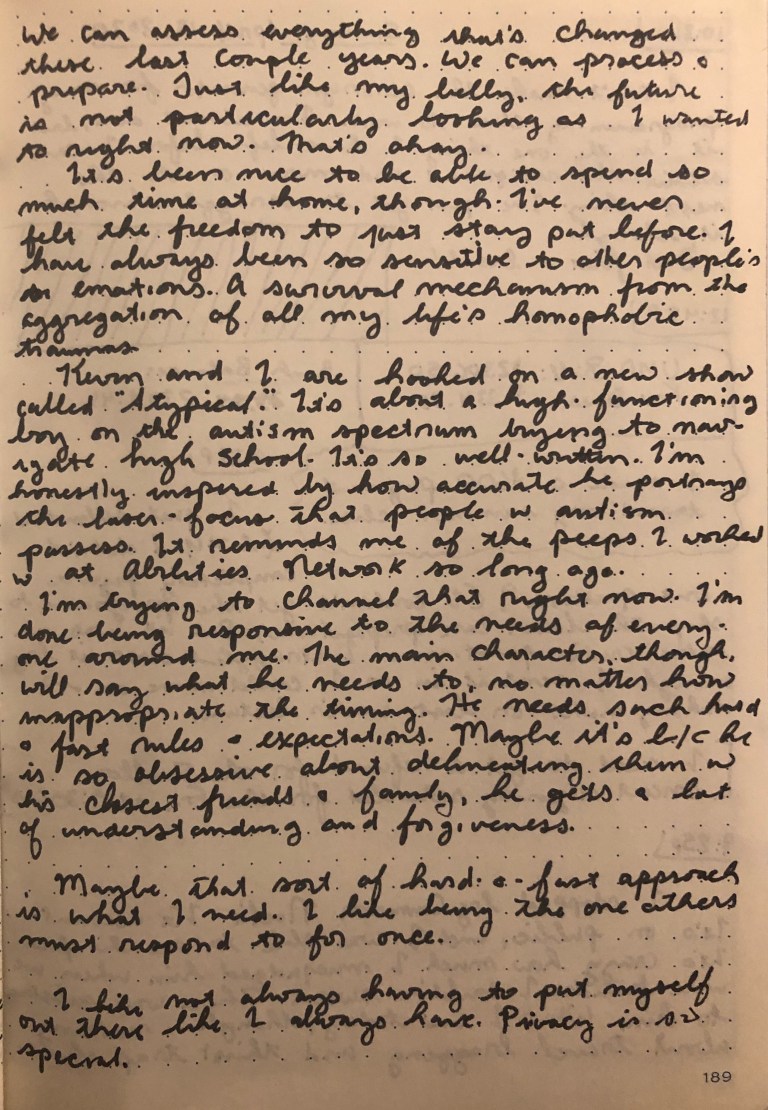 We can assess everything that's changed
these last couple years. We can process &
prepare. Just like my belly, the future
is not particularly looking as I wanted
to right now. That's okay.
It's been nice to be able to spend so
much time at home, though. I've never
felt the freedom to just stay put before. I
have always been so sensitive to other people's
emotions. A survival mechanism from the
aggregation of all my life's homophobic
traumas.
Kevin and I are hooked on a new show
called "Atypical." It's about a high-functioning
boy on the autism spectrum trying to nav-
igate high school. It's so well-written. I'm
honestly inspired by how accurate he portrays
the laser-focus that people w autism
possess. It reminds me of the peeps I worked
w at Abilities Network so long ago.
I'm trying to channel that right now. I'm
done being responsive to the needs of every-
one around me. The main character, though,
will say what he needs to, no matter how
inappropriate the timing. He needs such hard
& fast rules & expectations. Maybe it's b/c he
is so obsessive about delineating them w
his closest friends & family, he gets a lot
of understanding and forgiveness.
Maybe that sort of hard-&-fast approach
is what I need. I like being the one others
must respond to for once.
I like not always having to put myself
out there like I always have. Privacy is so
special.
189